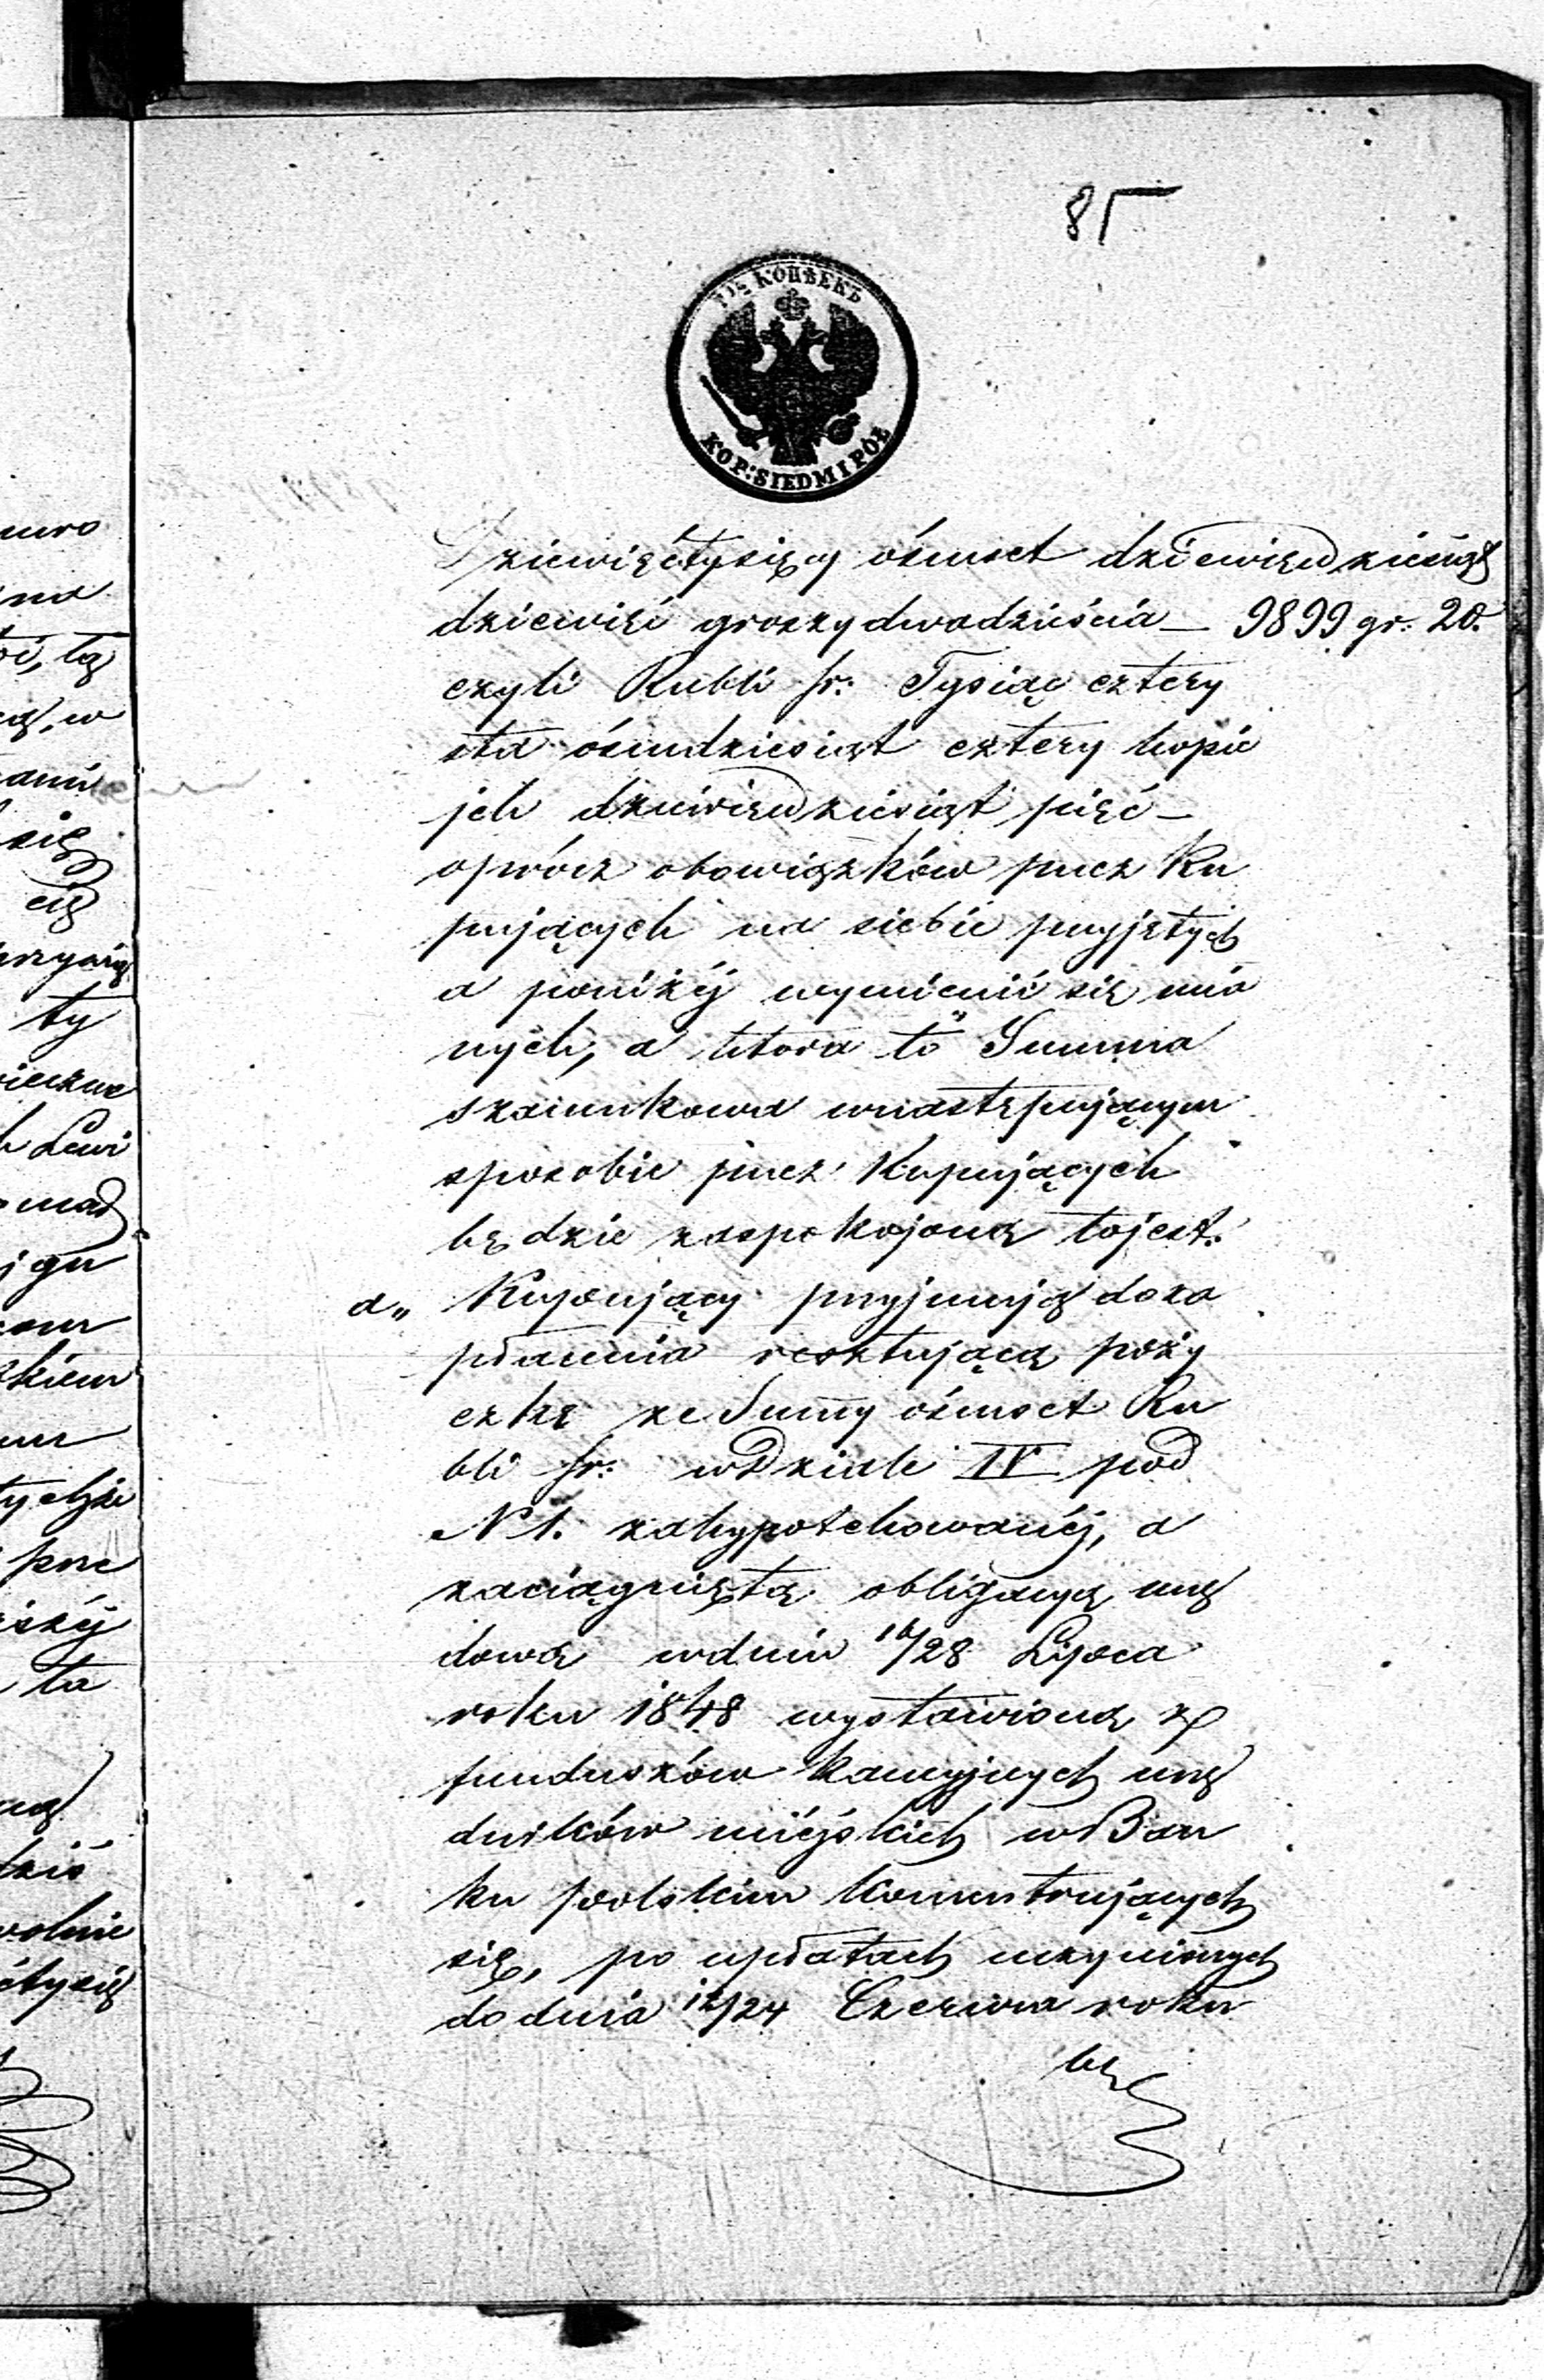 85
7½ КОПѢЕКЪ
KOP: SIEDM I PÓŁ
Dziewięćtysięcy ośmset dziewiędziesiąt
dziewięć groszy dwadzieścia — 9899 gr: 20.
czyli Rubli sr: Tysiąc cztery
sta ośmdziesiąt cztery kopie
jek dziewiędziesiąt pięć —
oprócz obowiązków przez Ku
pujących na siebie przyjętych
a poniżéj wymienić się mia
nych, a która to Summa
szacunkowa wnastępującym
sposobie przez Kupujących
będzie zaspokojoną tojest:
a„ Kupujący przyjmują doza
płacenia resztującą poży
czkę ze Summy ośmset Ru
bli sr: wDziale IV pod
N 1. zahypotekowanéj, a
zaciągniętą obligacyą urzę
dową wdniu 16/28 Lipca
roku 1848 wystawioną z
funduszów kaucyjnych urzę
dników miéjskich wBan
ku polskim koncentrujących
się, po upłatach uczynionych
do dnia 12/24 Czerwca roku
bę
uro
na
oi, tą
cą, w
ami
się
cię
ty
ieczne
h Lewi
mad
j gu
com
zkiem
um
tychże
prze
iżéj
ta
dziś
wolnie
ętysię